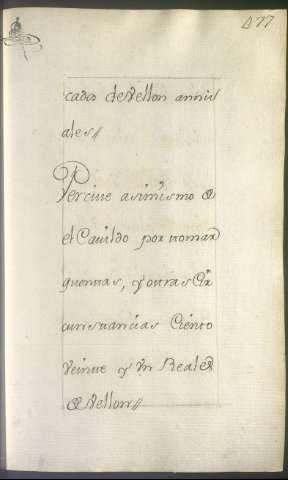 477
cados de Vellon annu
ales//
Percive asimismo de
el Cavildo por tomar
quentas, y otras Cir
cunstancias Ciento
veinte y Un Reales
de vellon//